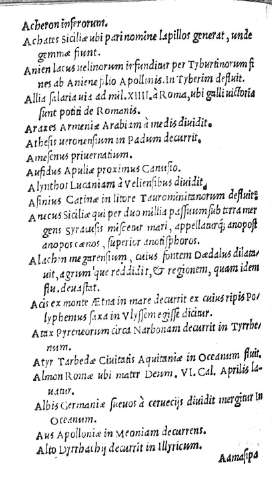 Acheron inferorum.
Achates Siciliæ ubi pari nomine lapillos generat, unde
gemmæ fiunt.
Anien lacus uelinorum infunditur per Tyburtinorum fi
nes ab Aniene filio Apollinis. in Tyberim defluit.
Allia salaria uia ad mil. XIIII. à Roma, ubi galli uictoria
sunt potiti de Romanis.
Araxes Armeniæ Arabiam à medis diuidit.
Athesis ueronensium in Padum decurrit.
Amesenus priuernatium.
Aufidus Apuliæ proximus Canusio.
Alynthos Lucaniam à Veliensibus diuidit.
Asinius Catinæ in litore Taurominitanorum defluit.
Anecus Siciliæ qui per duo millia passuum sub terra mer
gens Syracusis miscetur mari, appellaturq; anopost
anopos cænos, superior anotisphoros.
Alachin megarensium, cuius fontem Dædalus dilata-
uit, agrumque reddidit, & regionem, quam idem
flu. deuastat.
Acis ex monte Ætna in mare decurrit ex cuius ripis Po/
lyphemus saxa in Vlyssem egisse dicitur.
Atax Pyreneorum circa Narbonam decurrit in Tyrrhe-
num.
Atyr Tarbedæ Ciuitatis Aquitaniæ in Oceanum fluit.
Almon Romæ ubi mater Deum. VI. Cal. Aprilis la-
uatur.
Albis Germaniæ sueuos à ceruecijs diuidit mergitur in
Oceanum.
Aus Apolloniæ in Meoniam decurrens.
Alto Dyrrhachij decurrit in Illyricum.
Aamasipa